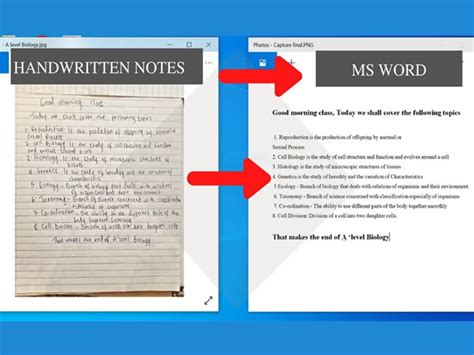 A level Biology.jpg
Photos - Capture final.PNG
HANDWRITTEN NOTES
MS WORD
Good morning Class
Today we shall cover the following topics
1 Reproduction is the production of offspring by asexual or
Sexual Process
2 Cell Biology is the study of cell structure and function
and evolves around a cell
3 Histology is the study of microscopic structures of
tissues
4 Genetics is the study of heredity and the variation of
Characteristics
5 Ecology - Branch of biology that deals with relations
of organisms and their environment
6 Taxonomy - Branch of science concerned with classification
especially of organisms
7 Co-ordination - The ability to use different parts of the
body together smoothly
8 Cell Division - Division of a cell into two daughter cells.
That makes the end of A'level Biology
Good morning class, Today we shall cover the following topics
1. Reproduction is the production of offspring by asexual or
Sexual Process
2. Cell Biology is the study of cell structure and function and evolves around a cell
3. Histology is the study of microscopic structures of tissues
4. Genetics is the study of heredity and the variation of Characteristics
5 Ecology - Branch of biology that deals with relations of organisms and their environment.
6. Taxonomy - Branch of science concerned with classification especially of organisms
7. Co-ordination - The ability to use different parts of the body together smoothly
8. Cell Division: Division of a cell into two daughter cells.
That makes the end of A 'level Biology